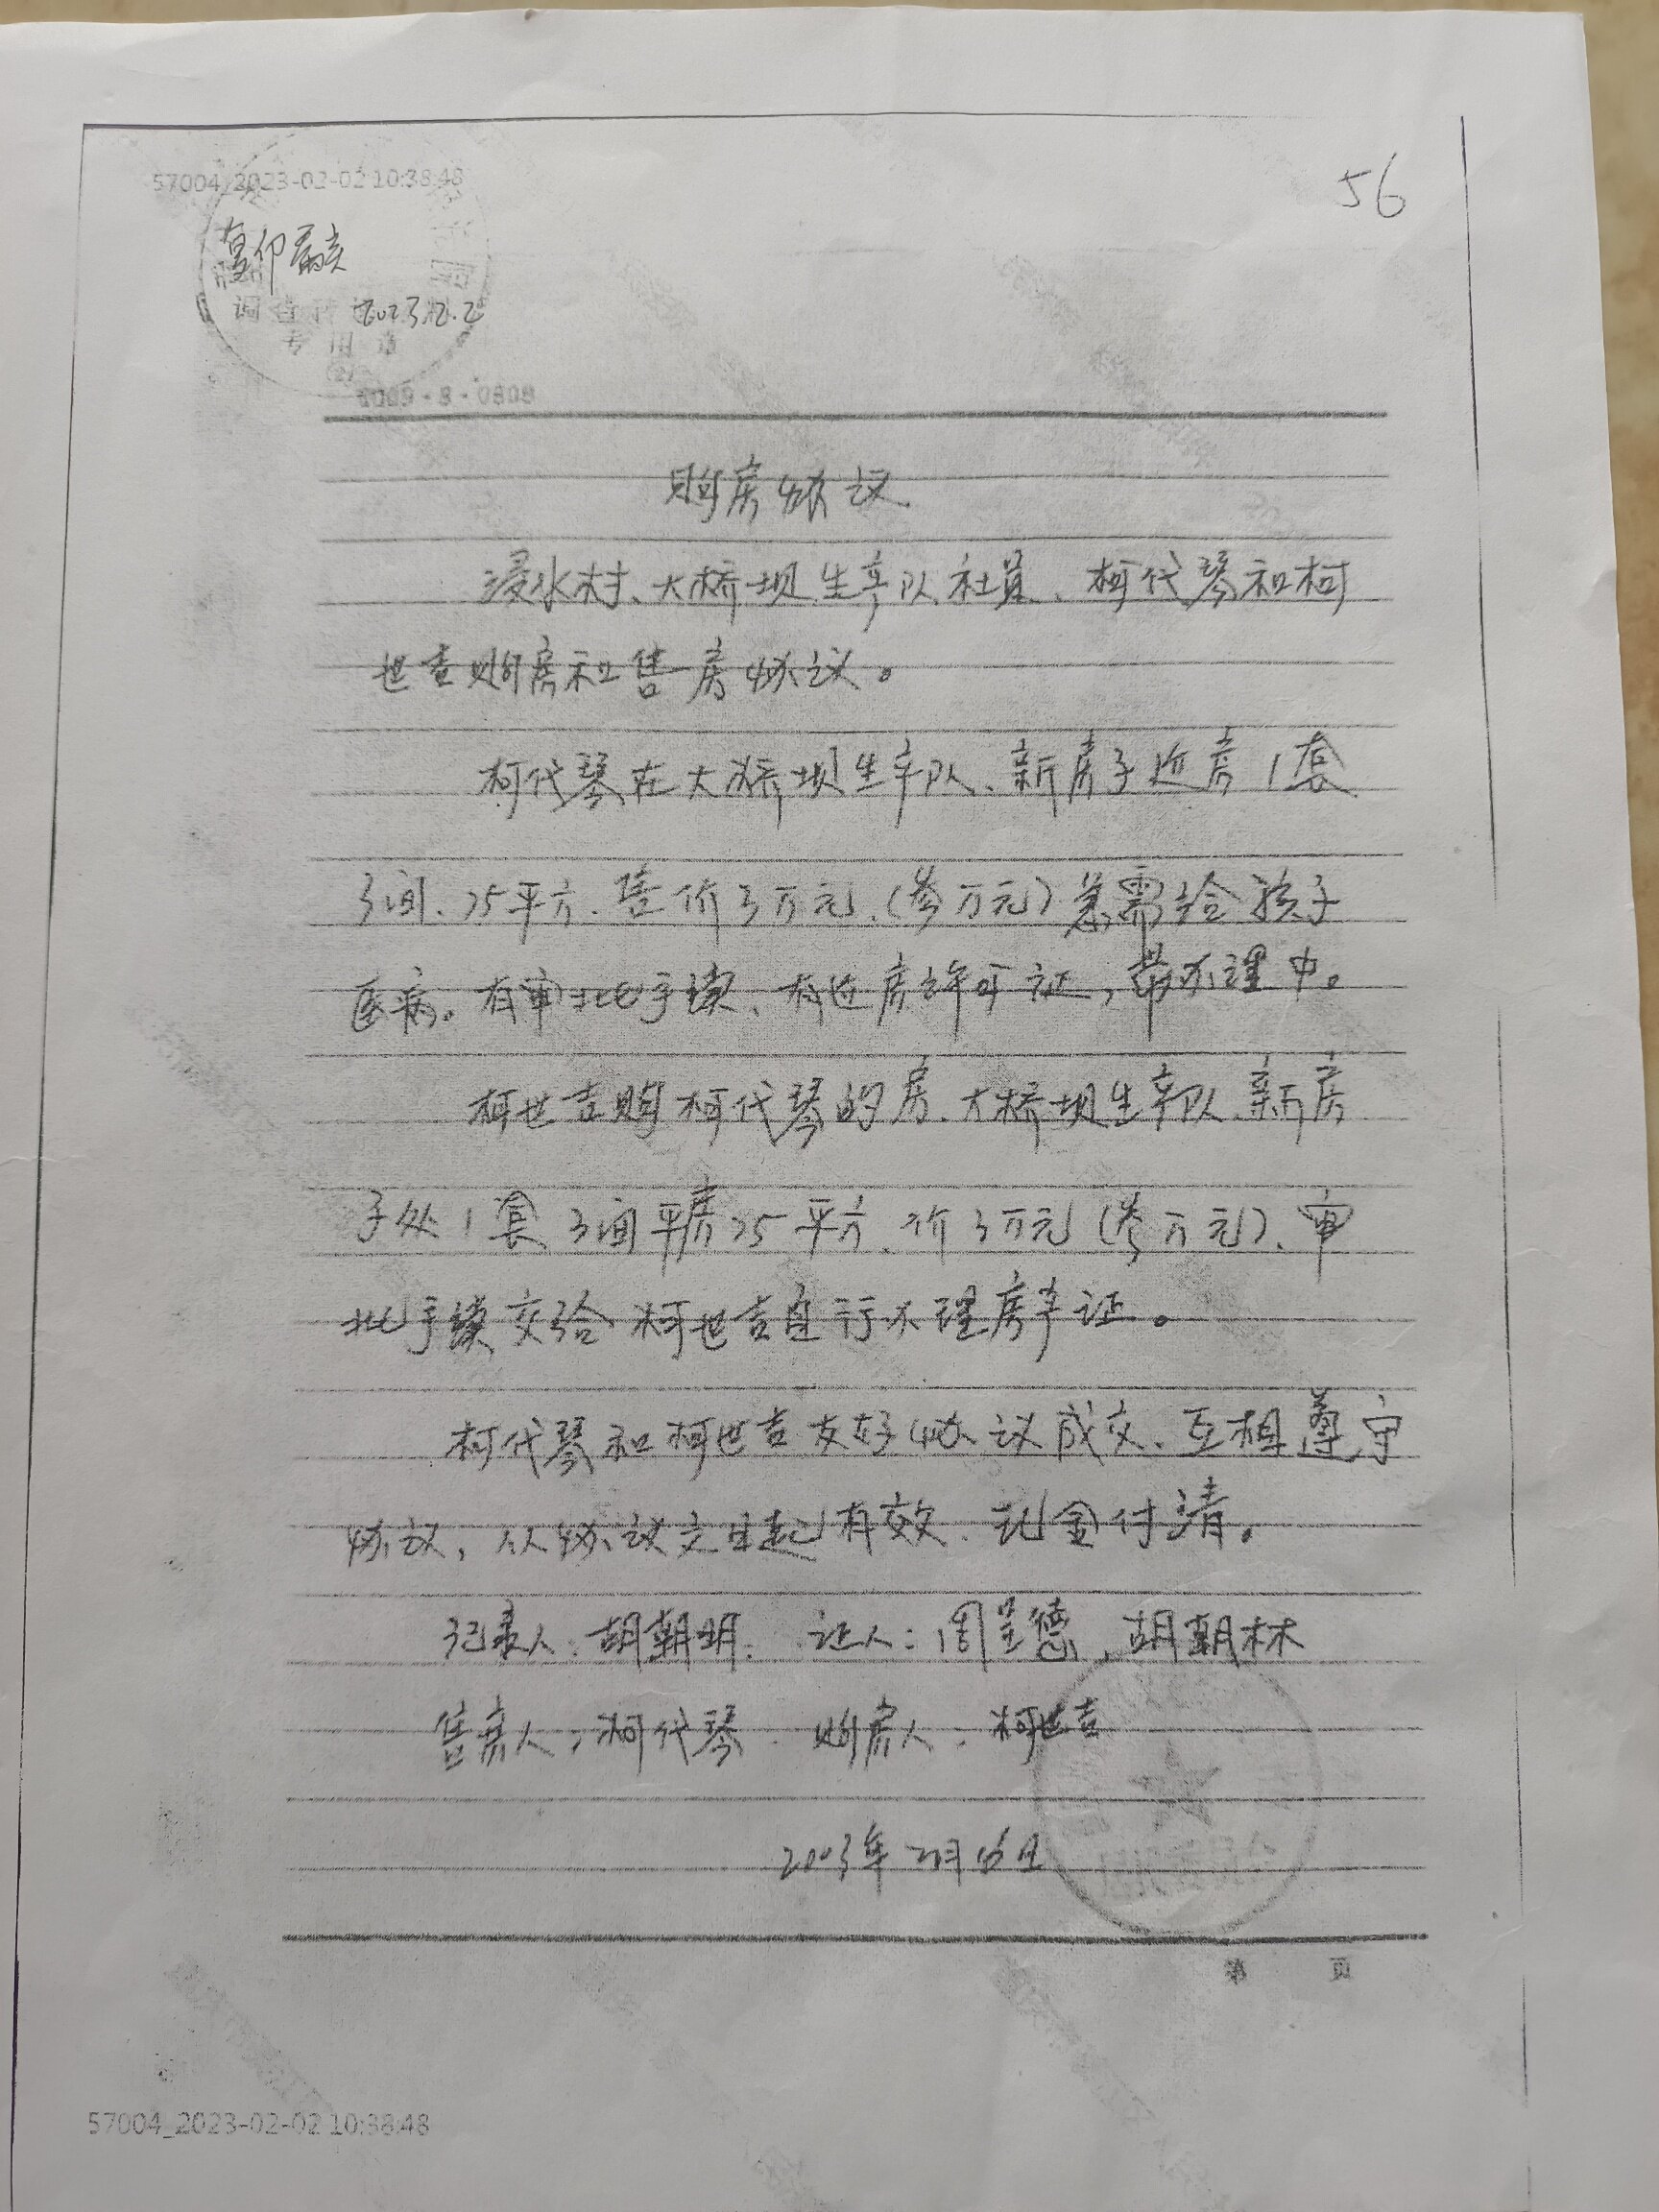 57004_2023-02-02 10:38:48
56
复印
调查
2023.2.2
专用章
(2)
2009-8-0809
购房协议
浸水村、大桥坝生产队社员、柯代琴和柯
世吉购房和售房协议。
柯代琴在大桥坝生产队、新房子近房1套
3间、25平方、售价3万元、(叁万元)急需给孩子
医病。有审批手续、有近房许可证,带办理中。
柯世吉购柯代琴的房、大桥坝生产队、新房
子处1套3间平房25平方、价3万元(叁万元)、审
批手续交给柯世吉自行办理房产证。
柯代琴和柯世吉友好协议成交、互相遵守
协议,从协议之日起有效、现金付清。
记录人:胡朝明. 证人:周呈德,胡朝林
售房人:柯代琴. 购房人:柯世吉
2003年 月 日
第 页
57004_2023-02-02 10:38:48